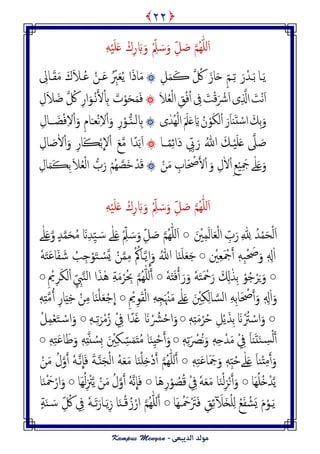 ﴿٢٢﴾
اَللّٰهُمَّ صَلِّ وَسَلِّمْ وَبَارِكْ عَلَيْهِ
يَـا بَـدْرَ تِـمٍّ حَازَ كُلَّ كَمَـالِ ۞ مَاذَا يُعَبِّرُ عَـنْ عُـلَاكَ مَقَـالِى
اَنْتَ الَّذِى اَشْرَقْتَ فِى اُفُقِ الْعُلَا ۞ فَمَحَوْتَ بِاْلاَنْوَارِ كُلَّ ضَلَالِ
وَبِكَ اسْتَنَارَ الْكَوْنُ يَاعَلَمَ الْهُدٰى ۞ بِالنُّـوْرِ وَاْلاِنْعَـامِ وَاْلاِفْضَـالِ
صَلَّى عَلَيْـكَ اللهُ رَبِّى دَائِمًـا ۞ اَبَدًا مَّعَ اْلاِبْكَارِ وَاْلاٰصَالِ
وَعَلَى جَمِيْعِ اْلاٰلِ وَاْلاَصْحَابِ مَنْ ۞ قَدْ خَصَّهُمْ رَبُّ الْعُلَا بِكَمَالِ
اَللّٰهُمَّ صَلِّ وَسَلِّمْ وَبَارِكْ عَلَيْهِ
اَلْحَمْدُ لِلّٰهِ رَبِّ الْعَالَمِيْنَ ۞ اَللّٰهُمَّ صَلِّ وَسَلِّمْ عَلَى سَيِّدِنَا مُحَمَّدٍ وَّعَلَى
اٰلِهٖ وَصَحْبِهٖ اَجْمَعِيْنَ ۞ جَعَلَنَا اللهُ وَاِيَّاكُمْ مِمَّنْ يَّسْتَوْجِبُ شَفَاعَتَهُ
وَيَرْجُوْ بِذٰلِكَ رَحْمَتَهُ وَرَأْفَتَهُ ۞ اَللّٰهُمَّ بِحُرْمَةِ هٰذَا النَّبِيِّ الْكَرِيْمِ ۞
وَاٰلِهٖ وَاَصْحَابِهِ السَّالِكِيْنَ عَلَى مَنْهَجِهِ الْقَوِيْمِ ۞ اِجْعَلْنَا مِنْ خِيَارِ اُمَّتِهٖ
۞ وَاسْتُرْنَا بِذَيْلِ حُرْمَتِهٖ ۞ وَاحْشُرْنَا غَدًا فِى زُمْرَتِـهٖ ۞ وَاسْتَعْمِلْ
اَلْسِنَتَنَا فِى مَدْحِهٖ وَنُصْرَتِهٖ ۞ وَاَحْيِنَا مُتَمَسِّكِيْنَ بِسُنَّتِهٖ وَطَاعَتِهٖ ۞
وَاَمِتْنَا عَلَى حُبِّهٖ وَجَمَاعَتِهٖ ۞ اَللّٰهُمَّ اَدْخِلْنَا مَعَهُ الْجَنَّـةَ فَاِنَّهُ اَوَّلُ مَنْ
يَّدْخُلُهَا ۞ وَاَنْزِلْنَا مَعَهُ فِى قُصُوْرِهَا ۞ فَاِنَّهُ اَوَّلُ مَنْ يَّنْزِلُهَا ۞ وَارْحَمْنَا
يَـوْمَ يَشْفَعُ لِلْخَلَآئِقِ فَتَرْحَمُـهَا ۞ اَللّٰهُمَّ ارْزُقْنَـا زِيَارَتَـهُ فِى كُلِّ سَـنَةٍ
Kampus Menyan - مولد الديبعى